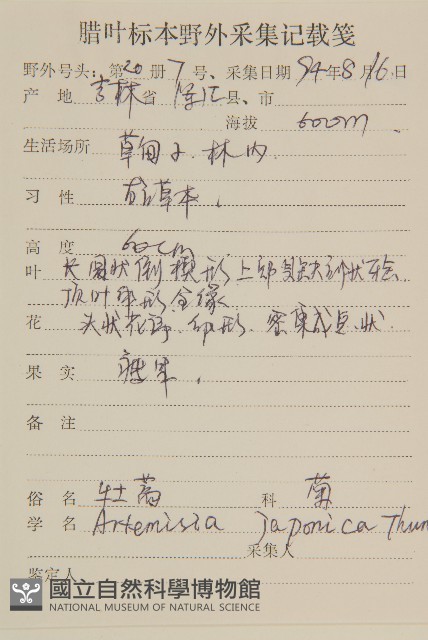 腊叶标本野外采集记载笺
野外号头：第20册7号、采集日期94年8月16日
产 地 吉林省 县、市
海拔 600m
生活场所 草甸子.林内.
习 性 草本.
高 度 60cm
叶 长圆状倒楔形上部
顶叶 形全缘
花 头状花序.卵形.密集成 状.
果 实 瘦果.
备 注
俗 名 牡蒿 科 菊
学 名 Artemisia japonica Thun
采集人
鉴定人
國立自然科學博物館
NATIONAL MUSEUM OF NATURAL SCIENCE